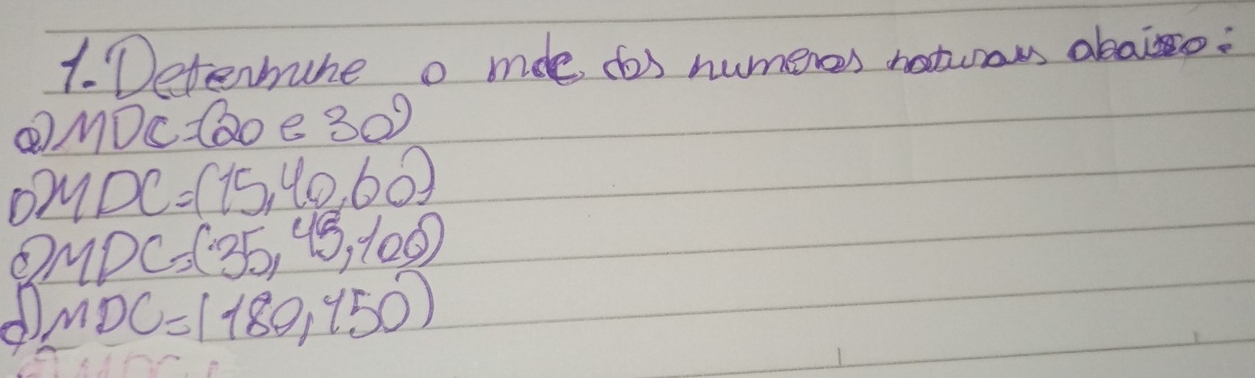 1. Determine o mdc dos numeros naturais abaixo:
a) MDC=(20 e 30)
b) MDC=(15,40,60)
c) MDC=(35,45,100)
d) MDC=(180,150)